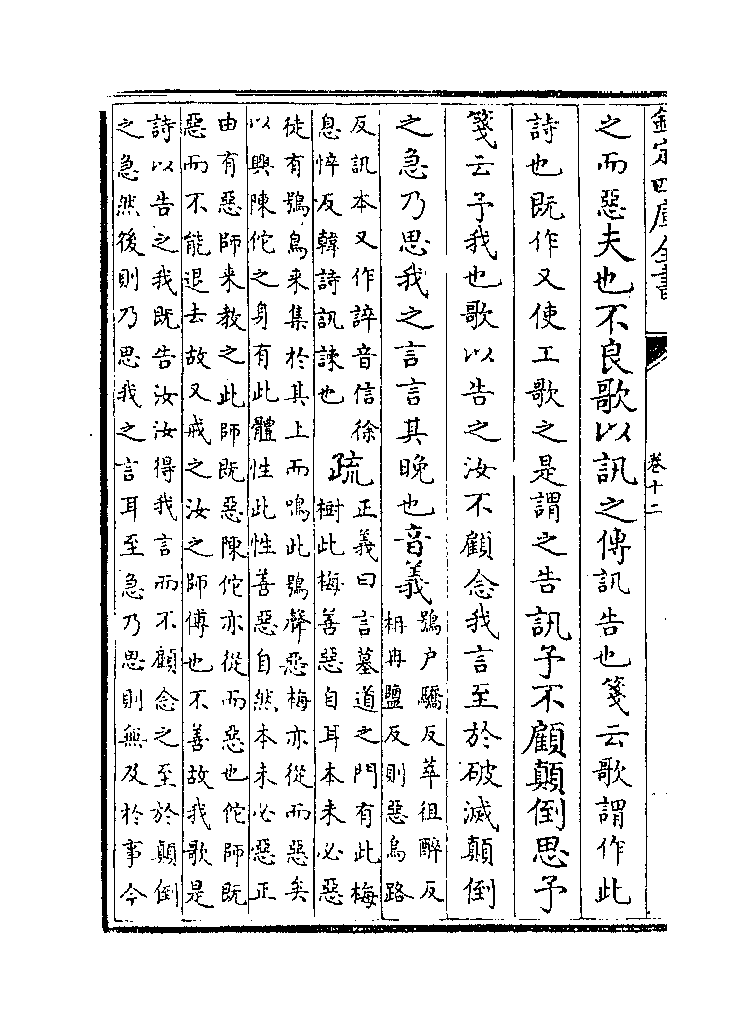 欽定四庫全書
卷十二
之而惡夫也不良歌以訊之傳訊告也箋云歌謂作此
詩也既作又使工歌之是謂之告訊予不顧顛倒思予
箋云予我也歌以告之汝不顧念我言至於破滅顛倒
之急乃思我之言言其晚也音義
鴞户驕反萃徂醉反
枏冉鹽反則惡烏路
反訊本又作誶音信徐
息悴反韓詩訊諫也
疏
正義曰言墓道之門有此梅
樹此梅善惡自耳本未必惡
徒有鴞鳥来集於其上而鳴此鴞聲惡梅亦從而惡矣
以興陳佗之身有此體性此性善惡自然本未必惡正
由有惡師来教之此師既惡陳佗亦從而惡也佗師既
惡而不能退去故又戒之汝之師傅也不善故我歌是
詩以告之我既告汝汝得我言而不顧念之至於顛倒
之急然後則乃思我之言耳至急乃思則無及於事今